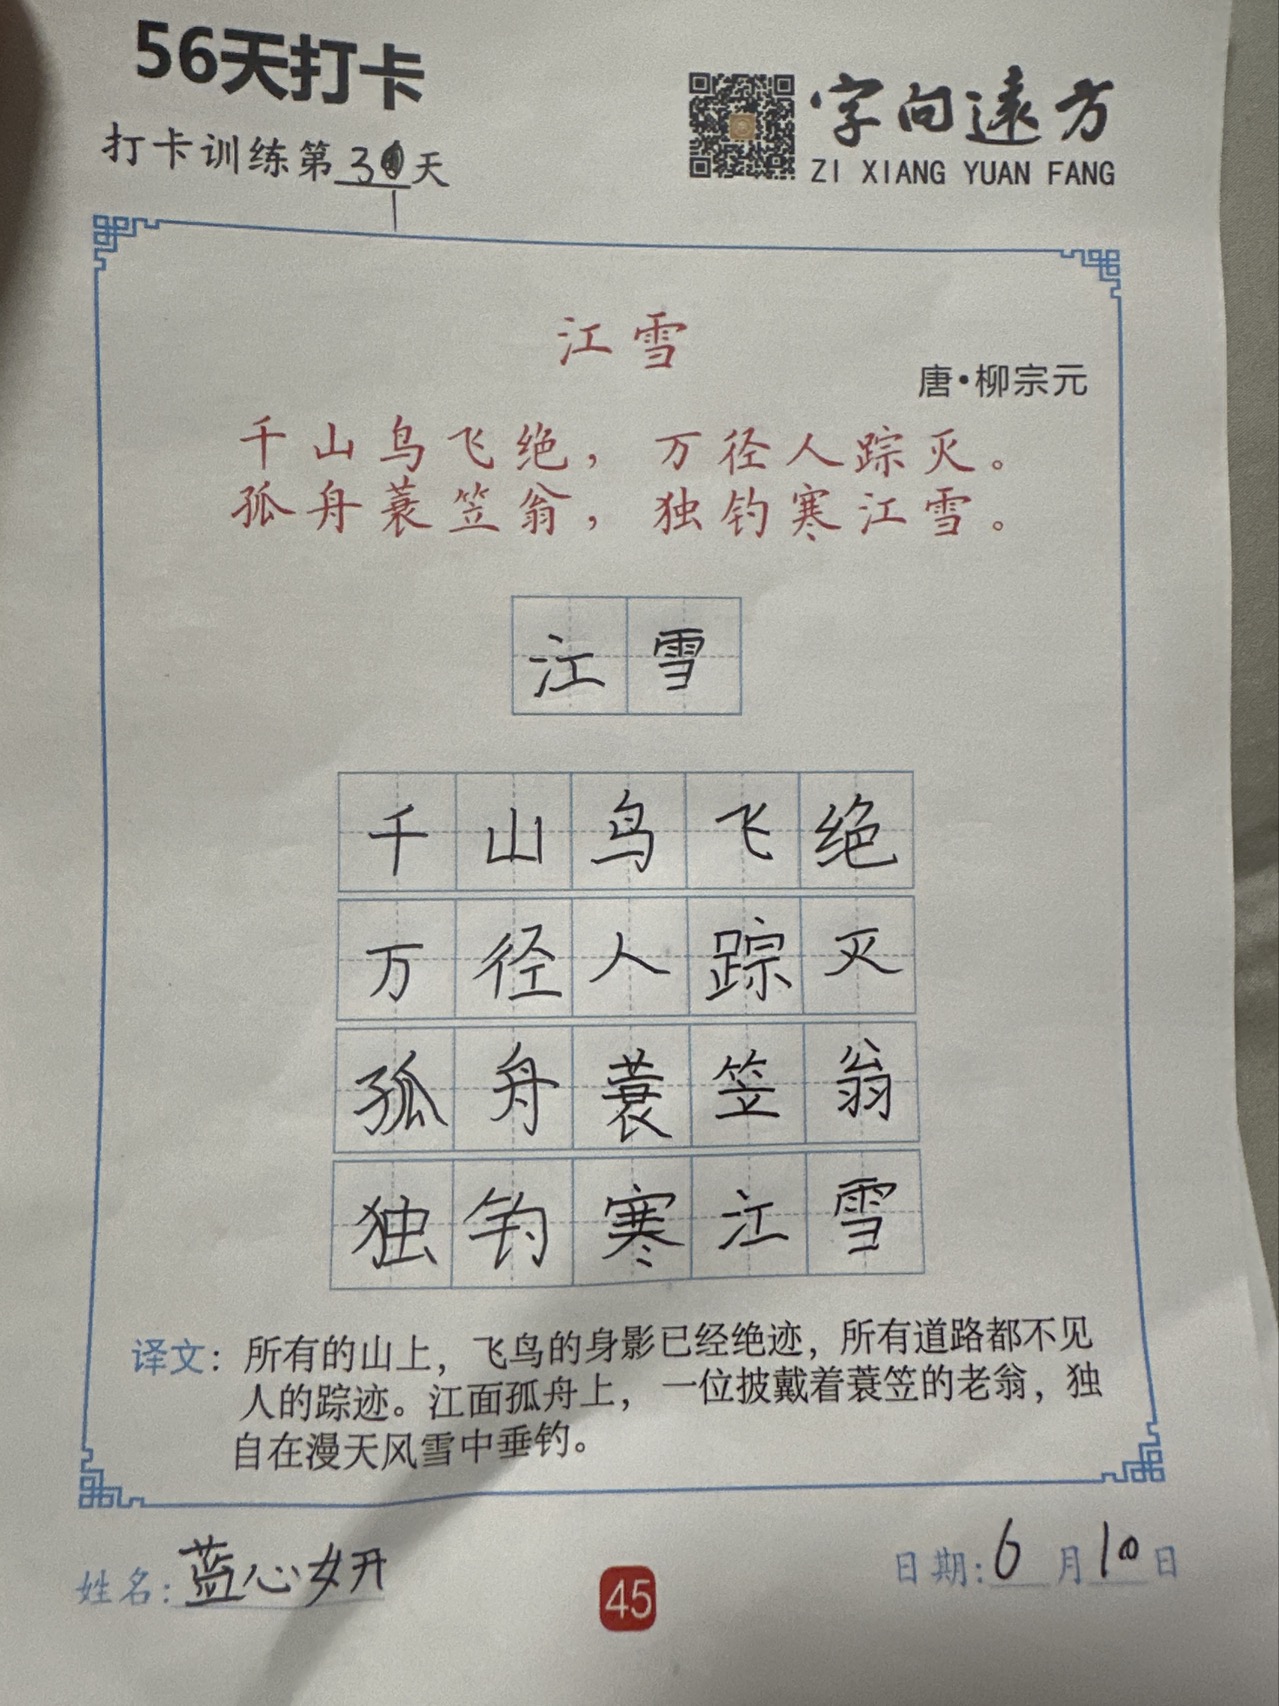 56天打卡
字向遠方
ZI XIANG YUAN FANG
打卡训练第3天
江雪
唐·柳宗元
千山鸟飞绝，万径人踪灭。
孤舟蓑笠翁，独钓寒江雪。
江雪
千山鸟飞绝
万径人踪灭
孤舟蓑笠翁
独钓寒江雪
译文：所有的山上，飞鸟的身影已经绝迹，所有道路都不见
人的踪迹。江面孤舟上，一位披戴着蓑笠的老翁，独
自在漫天风雪中垂钓。
姓名：蓝心妍
45
日期：6月10日